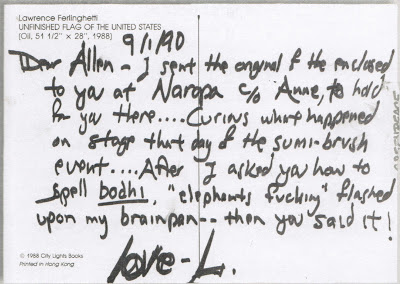 Lawrence Ferlinghetti
UNFINISHED FLAG OF THE UNITED STATES
(Oil, 51 1/2" x 28", 1988)
9/1/90
Dear Allen – I sent the original of the enclosed
to you at Naropa c/o Anne, to hold
for you there.... Curious what happened
on stage that day of the sumi-brush
event.... After I asked you how to
spell bodhi, "elephants fucking" flashed
upon my brainpan -- then you said it!
love – L.
© 1988 City Lights Books
Printed in Hong Kong